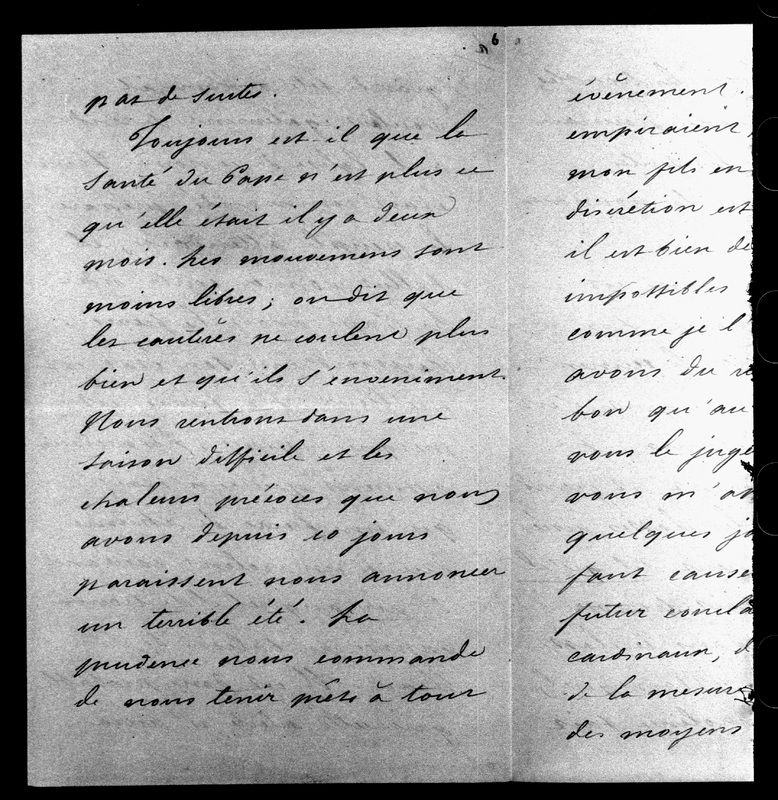 6
pas de suites.
Toujours est il que la
Santé du Pape n'est plus ce
qu'elle était il y a deux
mois. Les mouvemens sont
moins libres; on dit que
les cautères ne coulent plus
bien et qu'ils s'enveniment.
Nous rentrons dans une
saison difficile et les
chaleurs précoces que nous
avons depuis 10 jours
paraissent nous annoncer
un terrible été. La
prudence nous commande
de nous tenir prêts à tout
évènement.
empiraient,
mon fils en
discrétion est
il est bien de
impossibles
comme je l'
avons du re
bon qu'au
vous le juge
vous m'an
quelques jo
faut cause
futur concla
cardinaux, d
de la mesure
des moyens